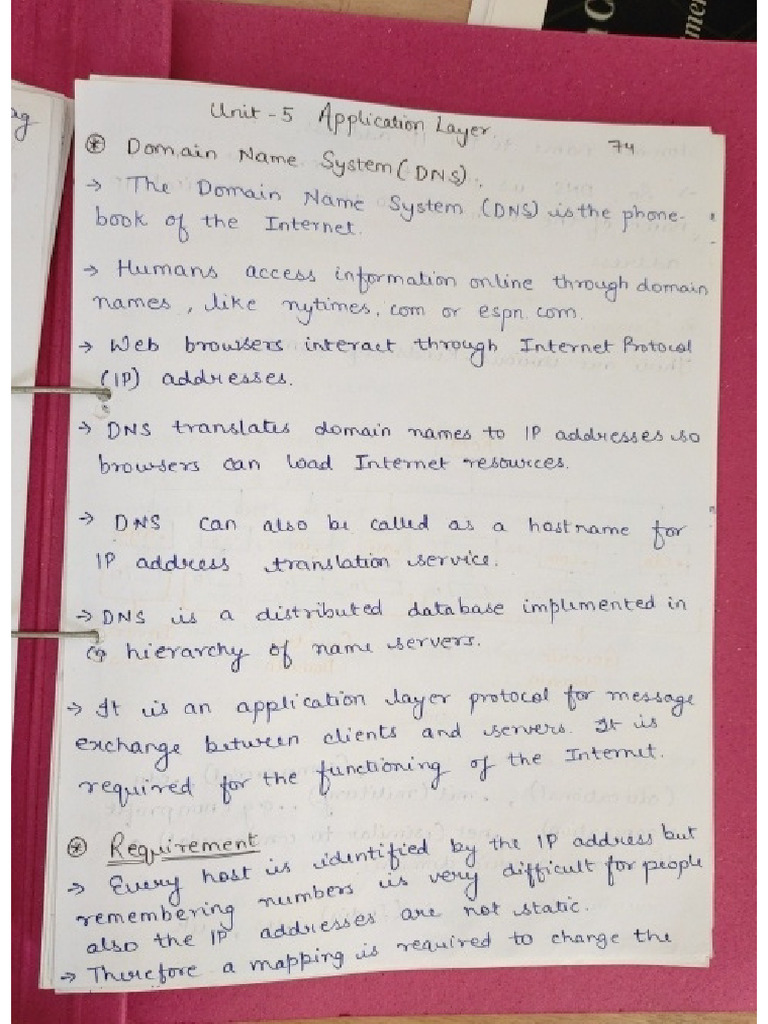 ag
Unit - 5 Application Layer
74
* Domain Name System (DNS) :
→ The Domain Name System (DNS) is the phone-
book of the Internet.
→ Humans access information online through domain
names, like nytimes.com or espn.com.
→ Web browsers interact through Internet Protocol
(IP) addresses.
→ DNS translates domain names to IP addresses so
browsers can load Internet resources.
→ DNS can also be called as a hostname for
IP address translation service.
→ DNS is a distributed database implemented in
hierarchy of name servers.
→ It is an application layer protocol for message
exchange between clients and servers. It is
required for the functioning of the Internet.
* Requirement
→ Every host is identified by the IP address but
remembering numbers is very difficult for people
also the IP addresses are not static.
→ Therefore a mapping is required to change the